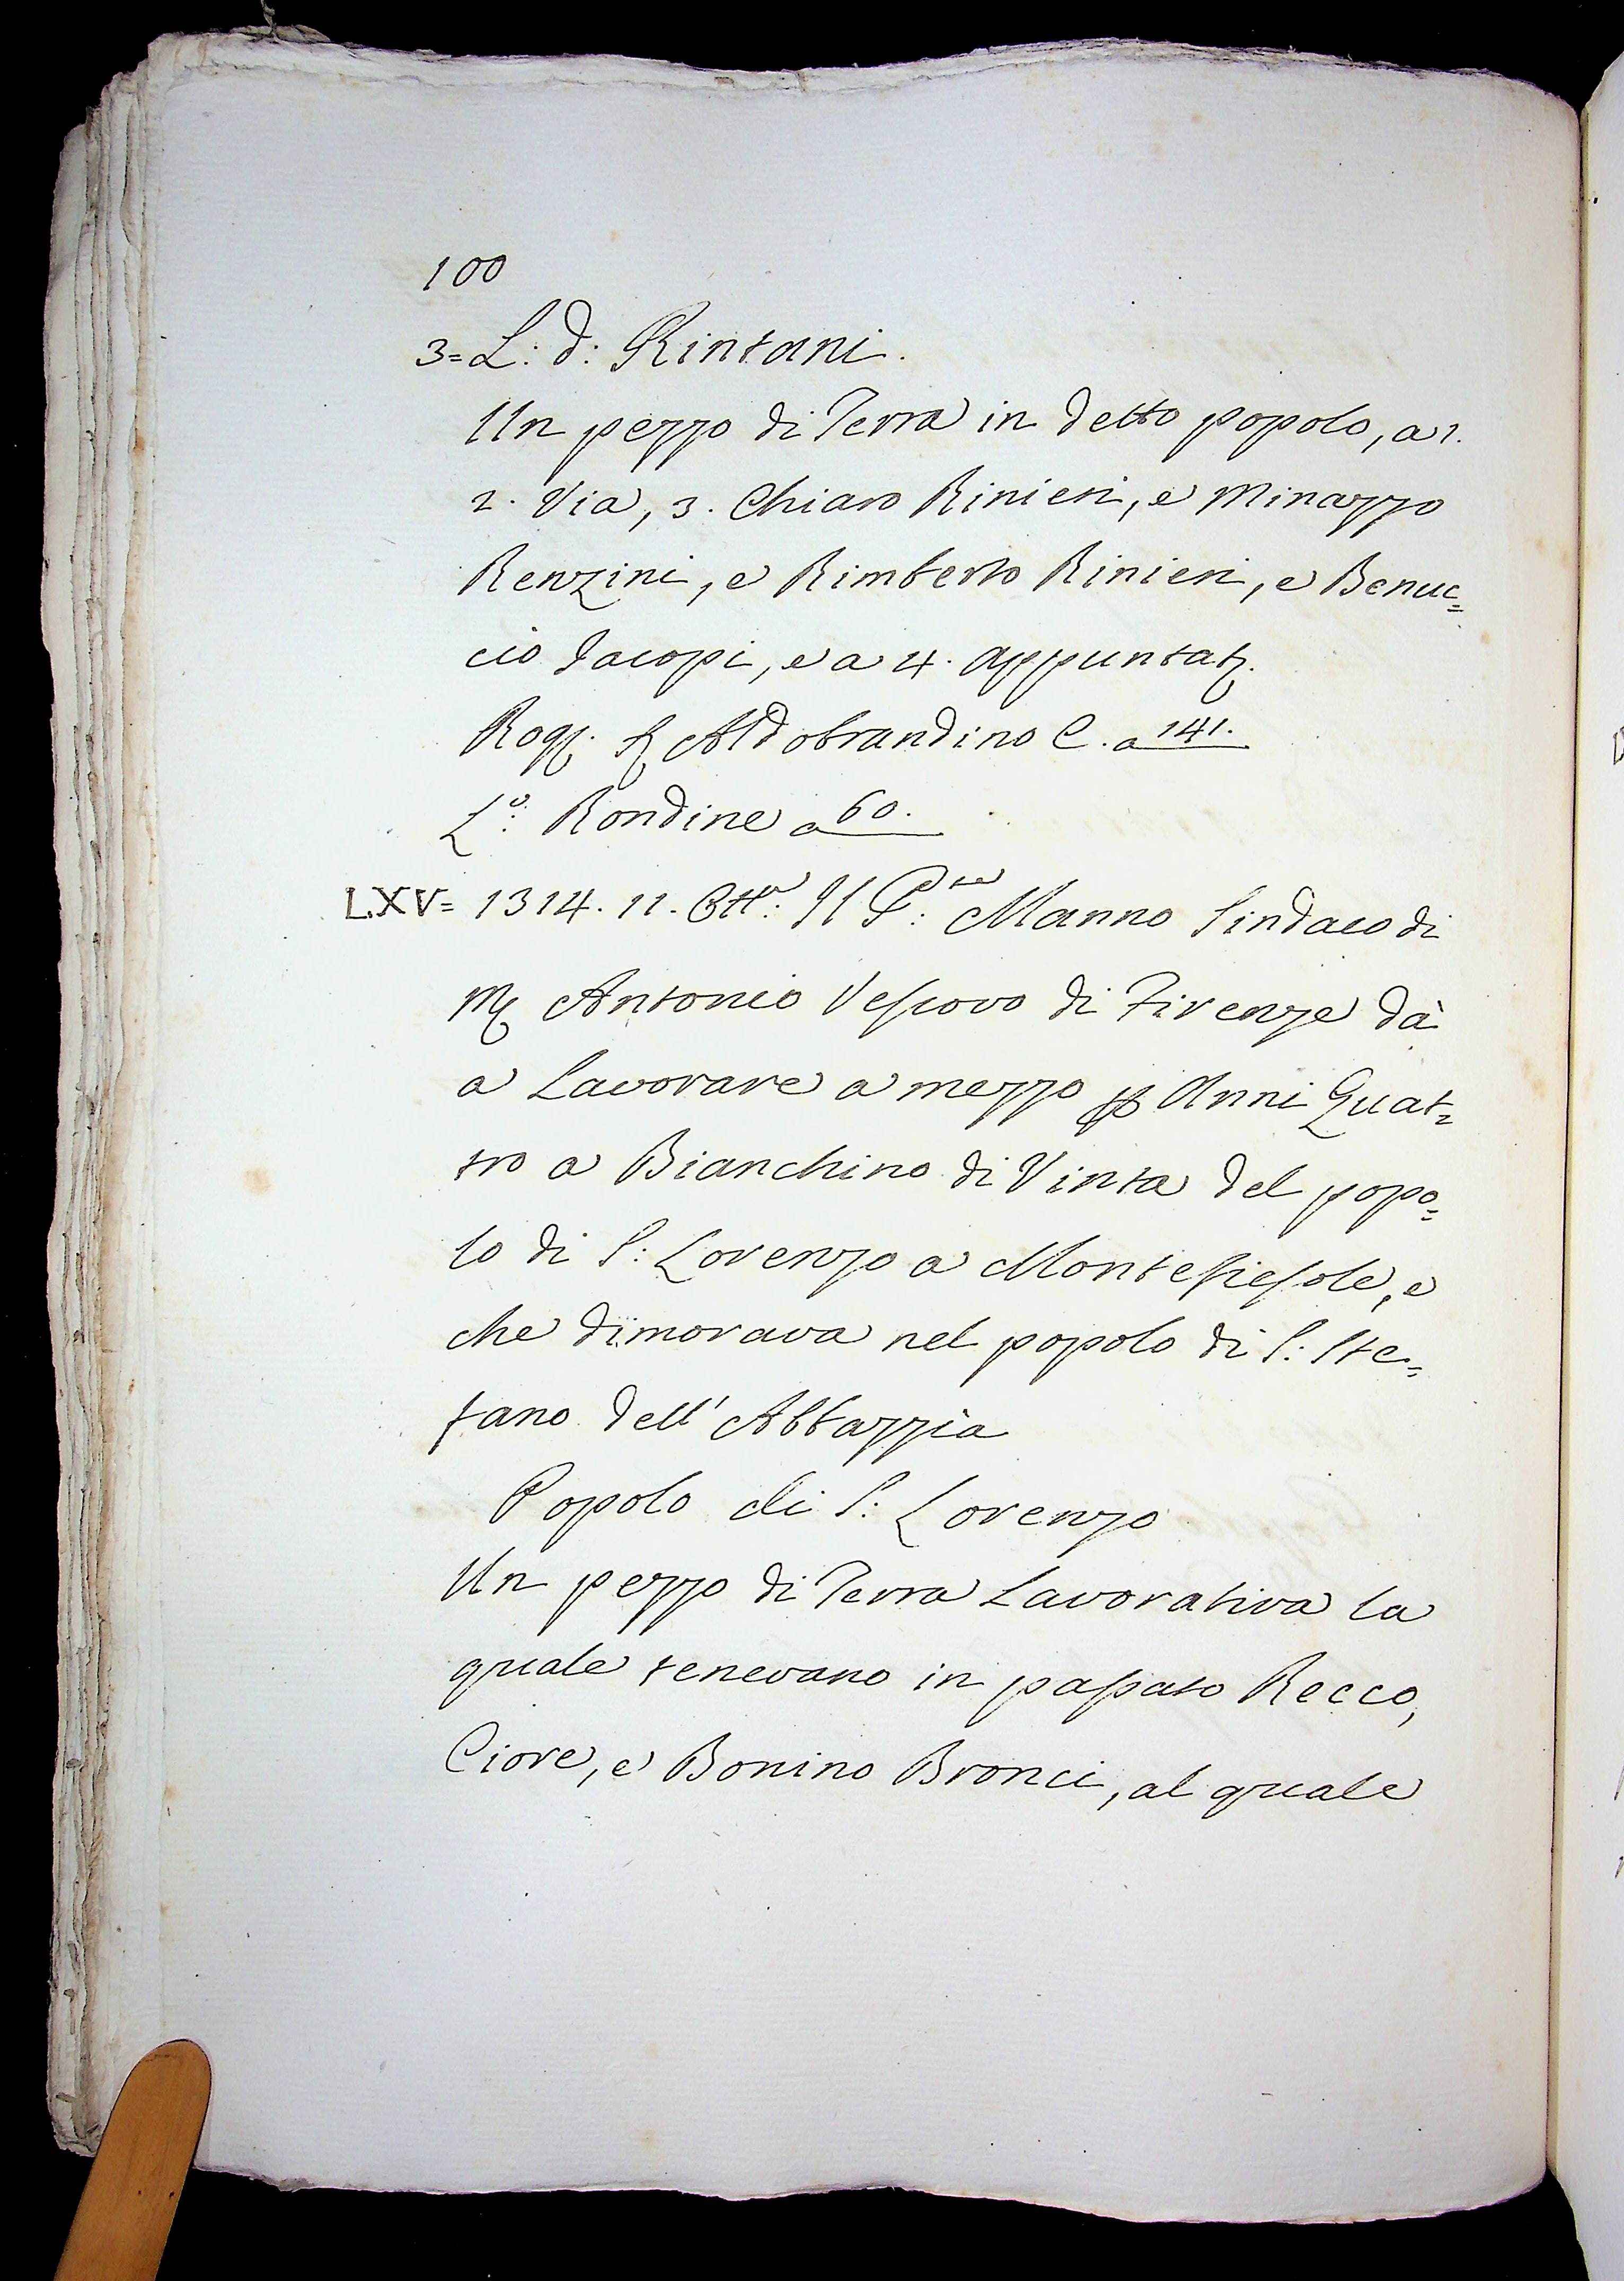 100
3= L: d: Rintani.
Un pezzo di Terra in detto popolo, a 1.
2. Via, 3. Chiaro Rinieri, e Minazzo
Renzini, e Rimberto Rinieri, e Benuc=
cio Iacopi, e a 4. appuntat.
Rog. Aldobrandino C. a 141.
L.o: Rondine a 60.
LXV= 1314. 11. Ott.e: Il P.te: Manno Sindaco di
M. Antonio Vescovo di Firenze dà
a Lavorare a mezzo p Anni Quat=
tro a Bianchino di Vinta del popo=
lo di S: Lorenzo a Montefiesole, e
che dimorava nel popolo di S: Ste=
fano dell' Abbazzia
Popolo di S: Lorenzo
Un pezzo di Terra Lavorativa la
quale tenevano in passato Recco,
Ciore, e Bonino Bronci, al quale